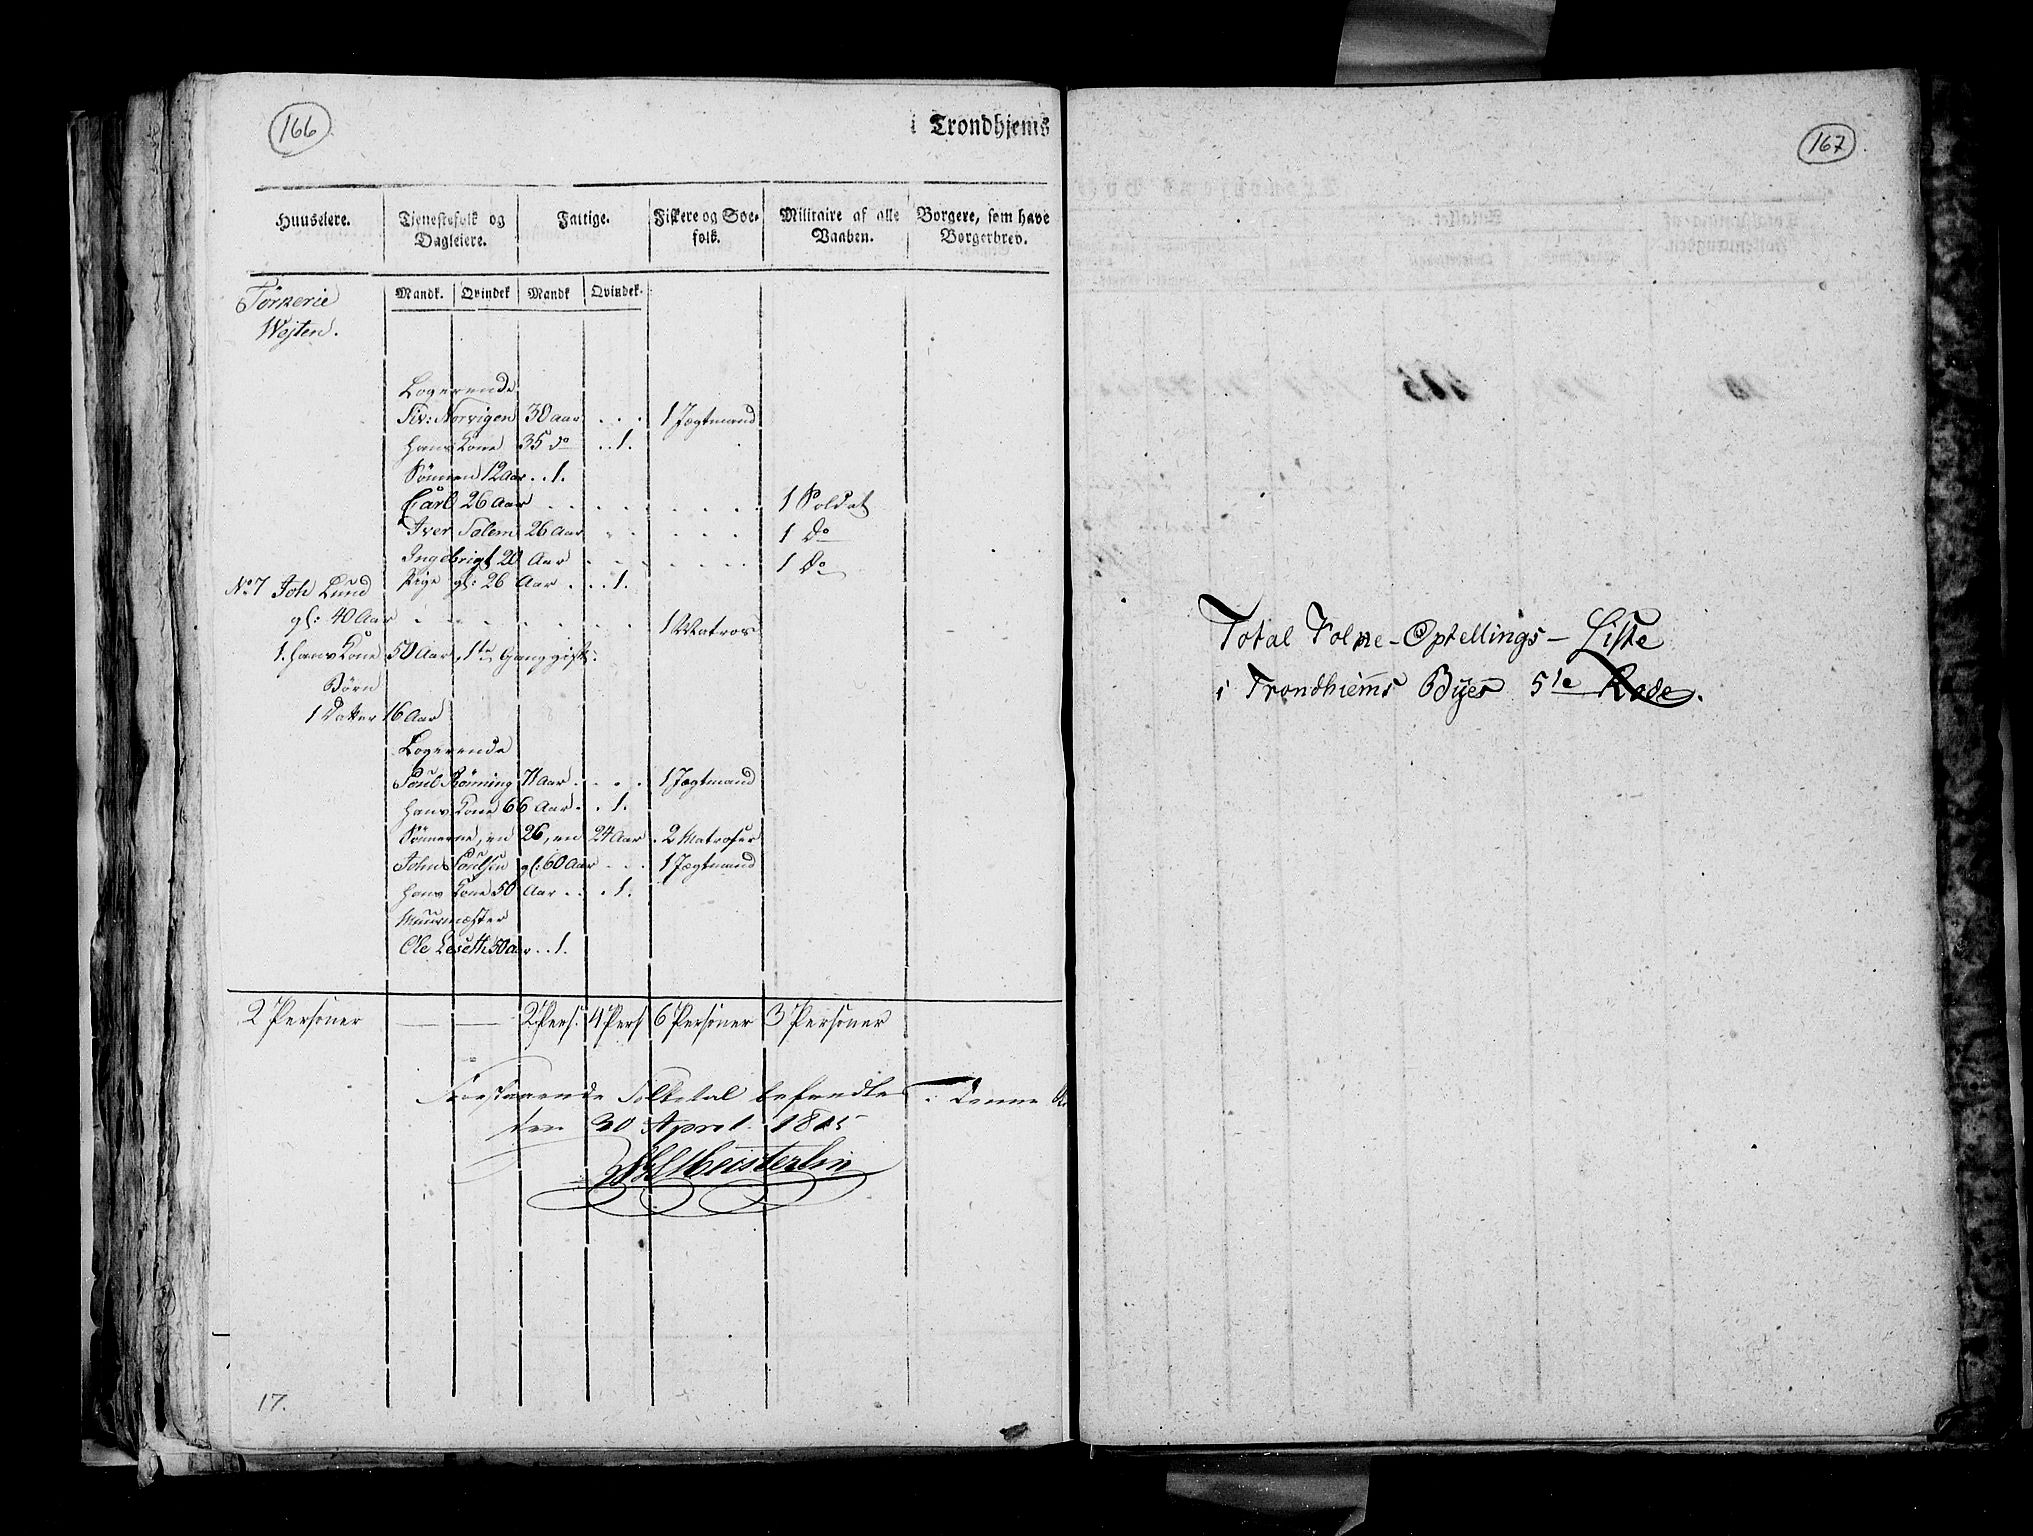 166
i Trondhjems
Huuseiere. Tienestefolk og Dagleiere. Fattige. Fiskere og Søefolk. Militaire af alle Vaaben. Borgere, som have Borgerbrev.
Mandk. Qvindek Mandk Qvindek.
Wejten.
Logerende
Siv: Norvigen 30 Aar . . . 1 Jægtmand
Hans Kone 35 do . . 1.
Sønnen 12 Aar . . 1.
Carl 26 Aar . . . . . . . 1 Soldat
Iver Salem 26 Aar . . . . . 1 Do
Ingebrigt 20 Aar . . . . . . 1 Do
Pige gl: 26 Aar . . . 1.
No 7 Joh Lund
gl: 40 Aar . . . . . . 1 Matros
1. Hans Kone 50 Aar, 1te Gang gift.
Børn
1 Datter 16 Aar
Logerende
Poul Rønning 71 Aar . . . 1 Jægtmand
Hans Kone 66 Aar . . 1.
Sønnerne, en 26, en 24 Aar . 2 Matroser
John Poulsen gl: 60 Aar . . . 1 Jægtmand
Hans Kone 50 Aar . . . 1.
Muurmæster
Ole Leseth 50 Aar . . 1.
2 Personer — — 2 Pers. 4 Pers 6 Personer 3 Personer
Forestaaende Folketal befandtes i Denne
den 30 April 1815
Meisterlin
17.
167
Total Folke-Optellings-Liste
i Trondhiems Byes 5te Rode.